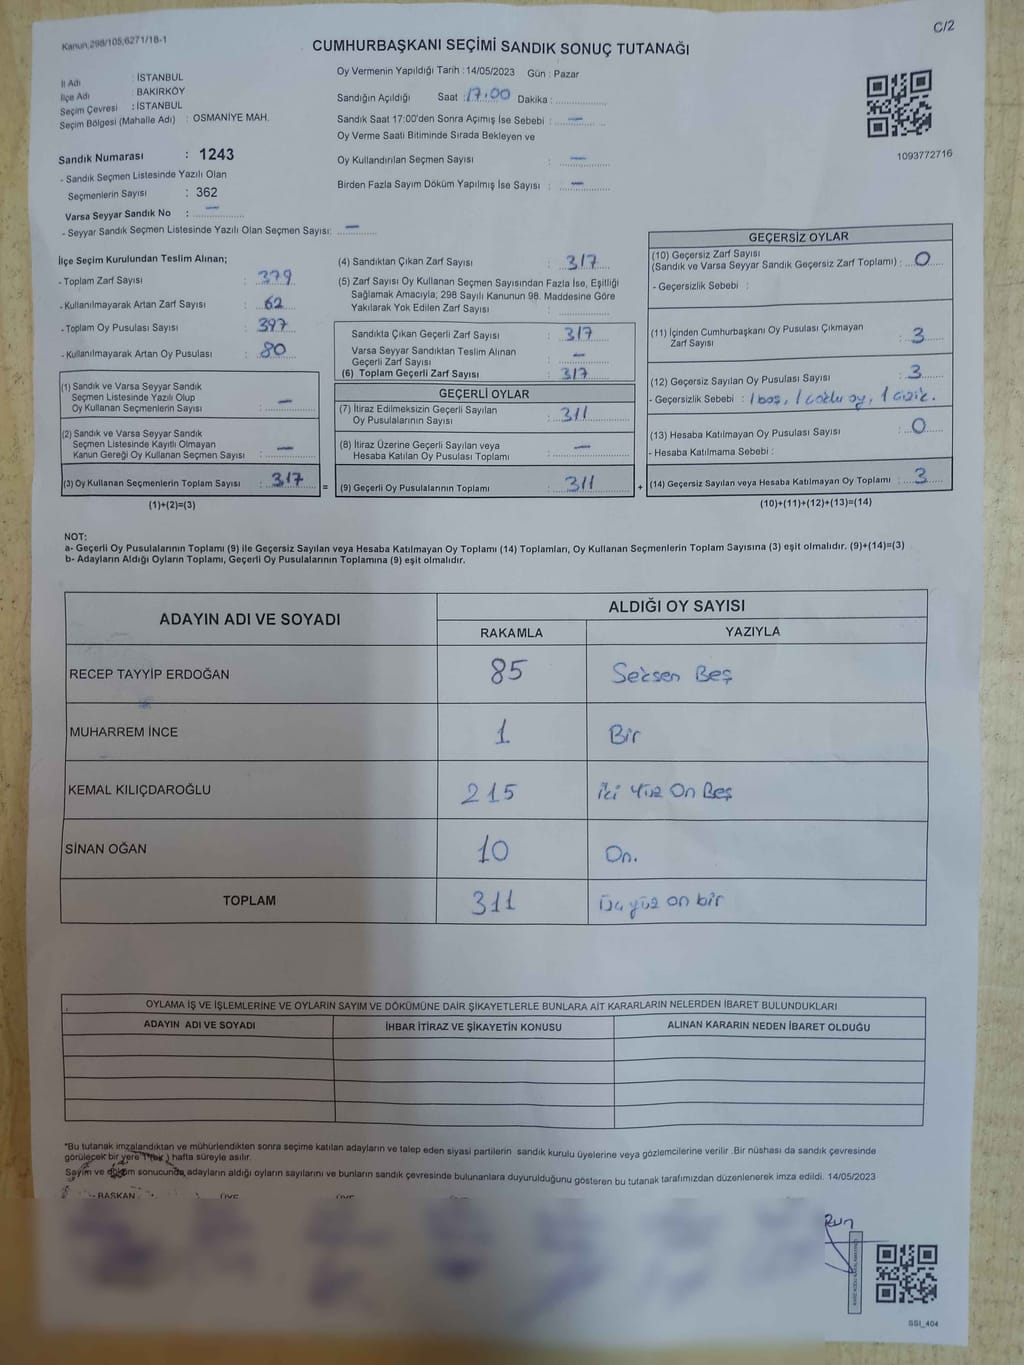 Kanun:298/105,6271/18-1
C/2
CUMHURBAŞKANI SEÇİMİ SANDIK SONUÇ TUTANAĞI
İl Adı : İSTANBUL
İlçe Adı : BAKIRKÖY
Seçim Çevresi : İSTANBUL
Seçim Bölgesi (Mahalle Adı) : OSMANİYE MAH.
Sandık Numarası : 1243
- Sandık Seçmen Listesinde Yazılı Olan
Seçmenlerin Sayısı : 362
Varsa Seyyar Sandık No : —
- Seyyar Sandık Seçmen Listesinde Yazılı Olan Seçmen Sayısı: —
Oy Vermenin Yapıldığı Tarih : 14/05/2023 Gün : Pazar
Sandığın Açıldığı Saat : 17.00 Dakika :
Sandık Saat 17:00'den Sonra Açımış İse Sebebi : —
Oy Verme Saati Bitiminde Sırada Bekleyen ve
Oy Kullandırılan Seçmen Sayısı : —
Birden Fazla Sayım Döküm Yapılmış İse Sayısı : —
1093772716
İlçe Seçim Kurulundan Teslim Alınan;
- Toplam Zarf Sayısı : 379
- Kullanılmayarak Artan Zarf Sayısı : 62
- Toplam Oy Pusulası Sayısı : 397
- Kullanılmayarak Artan Oy Pusulası : 80
(1) Sandık ve Varsa Seyyar Sandık
Seçmen Listesinde Yazılı Olup
Oy Kullanan Seçmenlerin Sayısı : —
(2) Sandık ve Varsa Seyyar Sandık
Seçmen Listesinde Kayıtlı Olmayan
Kanun Gereği Oy Kullanan Seçmen Sayısı : —
(3) Oy Kullanan Seçmenlerin Toplam Sayısı : 317 =
(1)+(2)=(3)
(4) Sandıktan Çıkan Zarf Sayısı : 317
(5) Zarf Sayısı Oy Kullanan Seçmen Sayısından Fazla İse, Eşitliği
Sağlamak Amacıyla; 298 Sayılı Kanunun 98. Maddesine Göre
Yakılarak Yok Edilen Zarf Sayısı :
Sandıkta Çıkan Geçerli Zarf Sayısı : 317
Varsa Seyyar Sandıktan Teslim Alınan
Geçerli Zarf Sayısı : —
(6) Toplam Geçerli Zarf Sayısı : 317
GEÇERLİ OYLAR
(7) İtiraz Edilmeksizin Geçerli Sayılan
Oy Pusulalarının Sayısı : 311
(8) İtiraz Üzerine Geçerli Sayılan veya
Hesaba Katılan Oy Pusulası Toplamı : —
(9) Geçerli Oy Pusulalarının Toplamı : 311 +
GEÇERSİZ OYLAR
(10) Geçersiz Zarf Sayısı
(Sandık ve Varsa Seyyar Sandık Geçersiz Zarf Toplamı) : 0
- Geçersizlik Sebebi :
(11) İçinden Cumhurbaşkanı Oy Pusulası Çıkmayan
Zarf Sayısı : 3
(12) Geçersiz Sayılan Oy Pusulası Sayısı : 3
- Geçersizlik Sebebi : 1 boş, 1 çoklu oy, 1 çizik.
(13) Hesaba Katılmayan Oy Pusulası Sayısı : 0
- Hesaba Katılmama Sebebi :
(14) Geçersiz Sayılan veya Hesaba Katılmayan Oy Toplamı : 3
(10)+(11)+(12)+(13)=(14)
NOT:
a- Geçerli Oy Pusulalarının Toplamı (9) ile Geçersiz Sayılan veya Hesaba Katılmayan Oy Toplamı (14) Toplamları, Oy Kullanan Seçmenlerin Toplam Sayısına (3) eşit olmalıdır. (9)+(14)=(3)
b- Adayların Aldığı Oyların Toplamı, Geçerli Oy Pusulalarının Toplamına (9) eşit olmalıdır.
ADAYIN ADI VE SOYADI ALDIĞI OY SAYISI
RAKAMLA YAZIYLA
RECEP TAYYİP ERDOĞAN 85 Seksen Beş
MUHARREM İNCE 1 Bir
KEMAL KILIÇDAROĞLU 215 İki Yüz On Beş
SİNAN OĞAN 10 On.
TOPLAM 311 Üçyüz on bir
OYLAMA İŞ VE İŞLEMLERİNE VE OYLARIN SAYIM VE DÖKÜMÜNE DAİR ŞİKAYETLERLE BUNLARA AİT KARARLARIN NELERDEN İBARET BULUNDUKLARI
ADAYIN ADI VE SOYADI İHBAR İTİRAZ VE ŞİKAYETİN KONUSU ALINAN KARARIN NEDEN İBARET OLDUĞU
*Bu tutanak imzalandıktan ve mühürlendikten sonra seçime katılan adayların ve talep eden siyasi partilerin sandık kurulu üyelerine veya gözlemcilerine verilir .Bir nüshası da sandık çevresinde
görülecek bir yere 1 (bir ) hafta süreyle asılır.
Sayım ve döküm sonucunda adayların aldığı oyların sayılarını ve bunların sandık çevresinde bulunanlara duyurulduğunu gösteren bu tutanak tarafımızdan düzenlenerek imza edildi. 14/05/2023
BAŞKAN ÜYE ÜYE
SSI_404